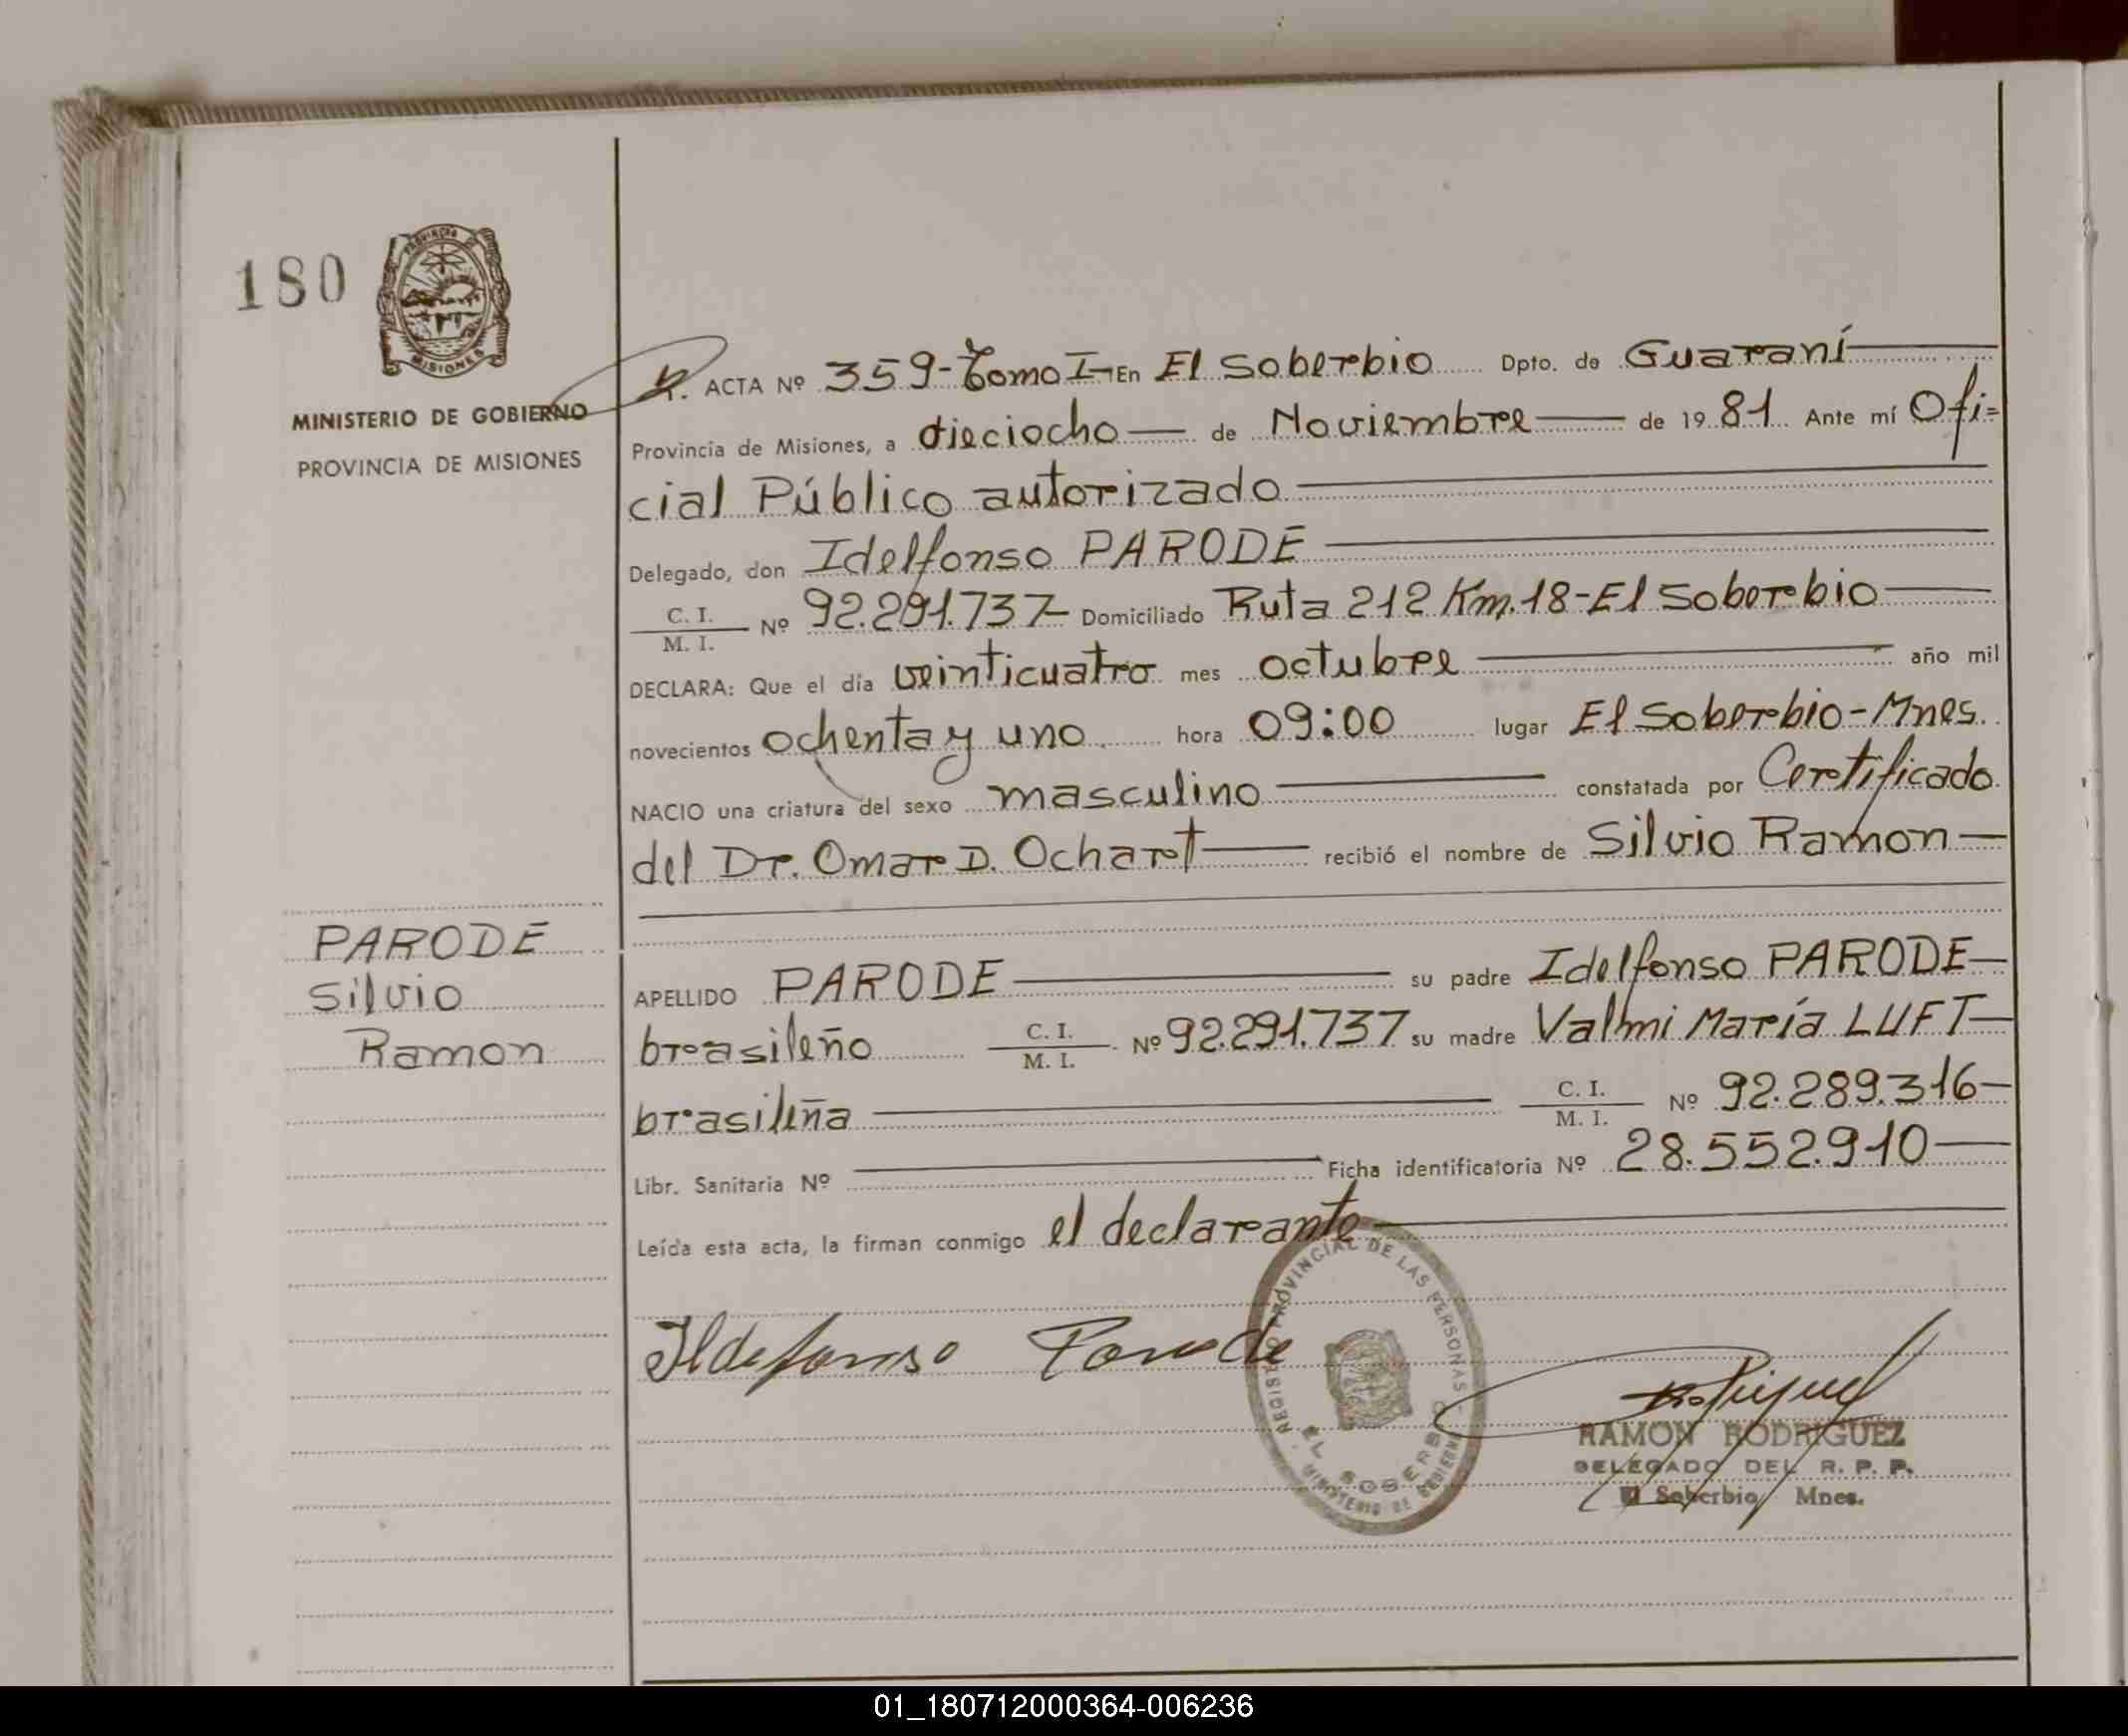 180
PROVINCIA DE
MISIONES
MINISTERIO DE GOBIERNO
PROVINCIA DE MISIONES
ACTA Nº 359-Tomo I- En El Soberbio Dpto. de Guaraní
Provincia de Misiones, a dieciocho de Noviembre de 1981 Ante mí Ofi=
cial Público autorizado
Delegado, don Idelfonso PARODE
C. I. / M. I. Nº 92.291.737- Domiciliado Ruta 212 Km.18-El Soberbio
DECLARA: Que el día veinticuatro mes octubre año mil
novecientos ochenta y uno hora 09:00 lugar El Soberbio-Mnes.
NACIO una criatura del sexo masculino constatada por Certificado
del Dr. Omar D. Ocharet recibió el nombre de Silvio Ramon
PARODE
Silvio
Ramon
APELLIDO PARODE su padre Idelfonso PARODE
brasileño C. I. / M. I. Nº 92.291.737 su madre Valmi María LUFT
brasileña C. I. / M. I. Nº 92.289.316
Libr. Sanitaria Nº Ficha identificatoria Nº 28.552.910
Leída esta acta, la firman conmigo el declarante
Ildefonso Parode
REGISTRO PROVINCIAL DE LAS PERSONAS
EL SOBERBIO
MINISTERIO DE GOBIERNO
RAMON RODRIGUEZ
DELEGADO DEL R. P. P.
El Soberbio Mnes.
01_180712000364-006236